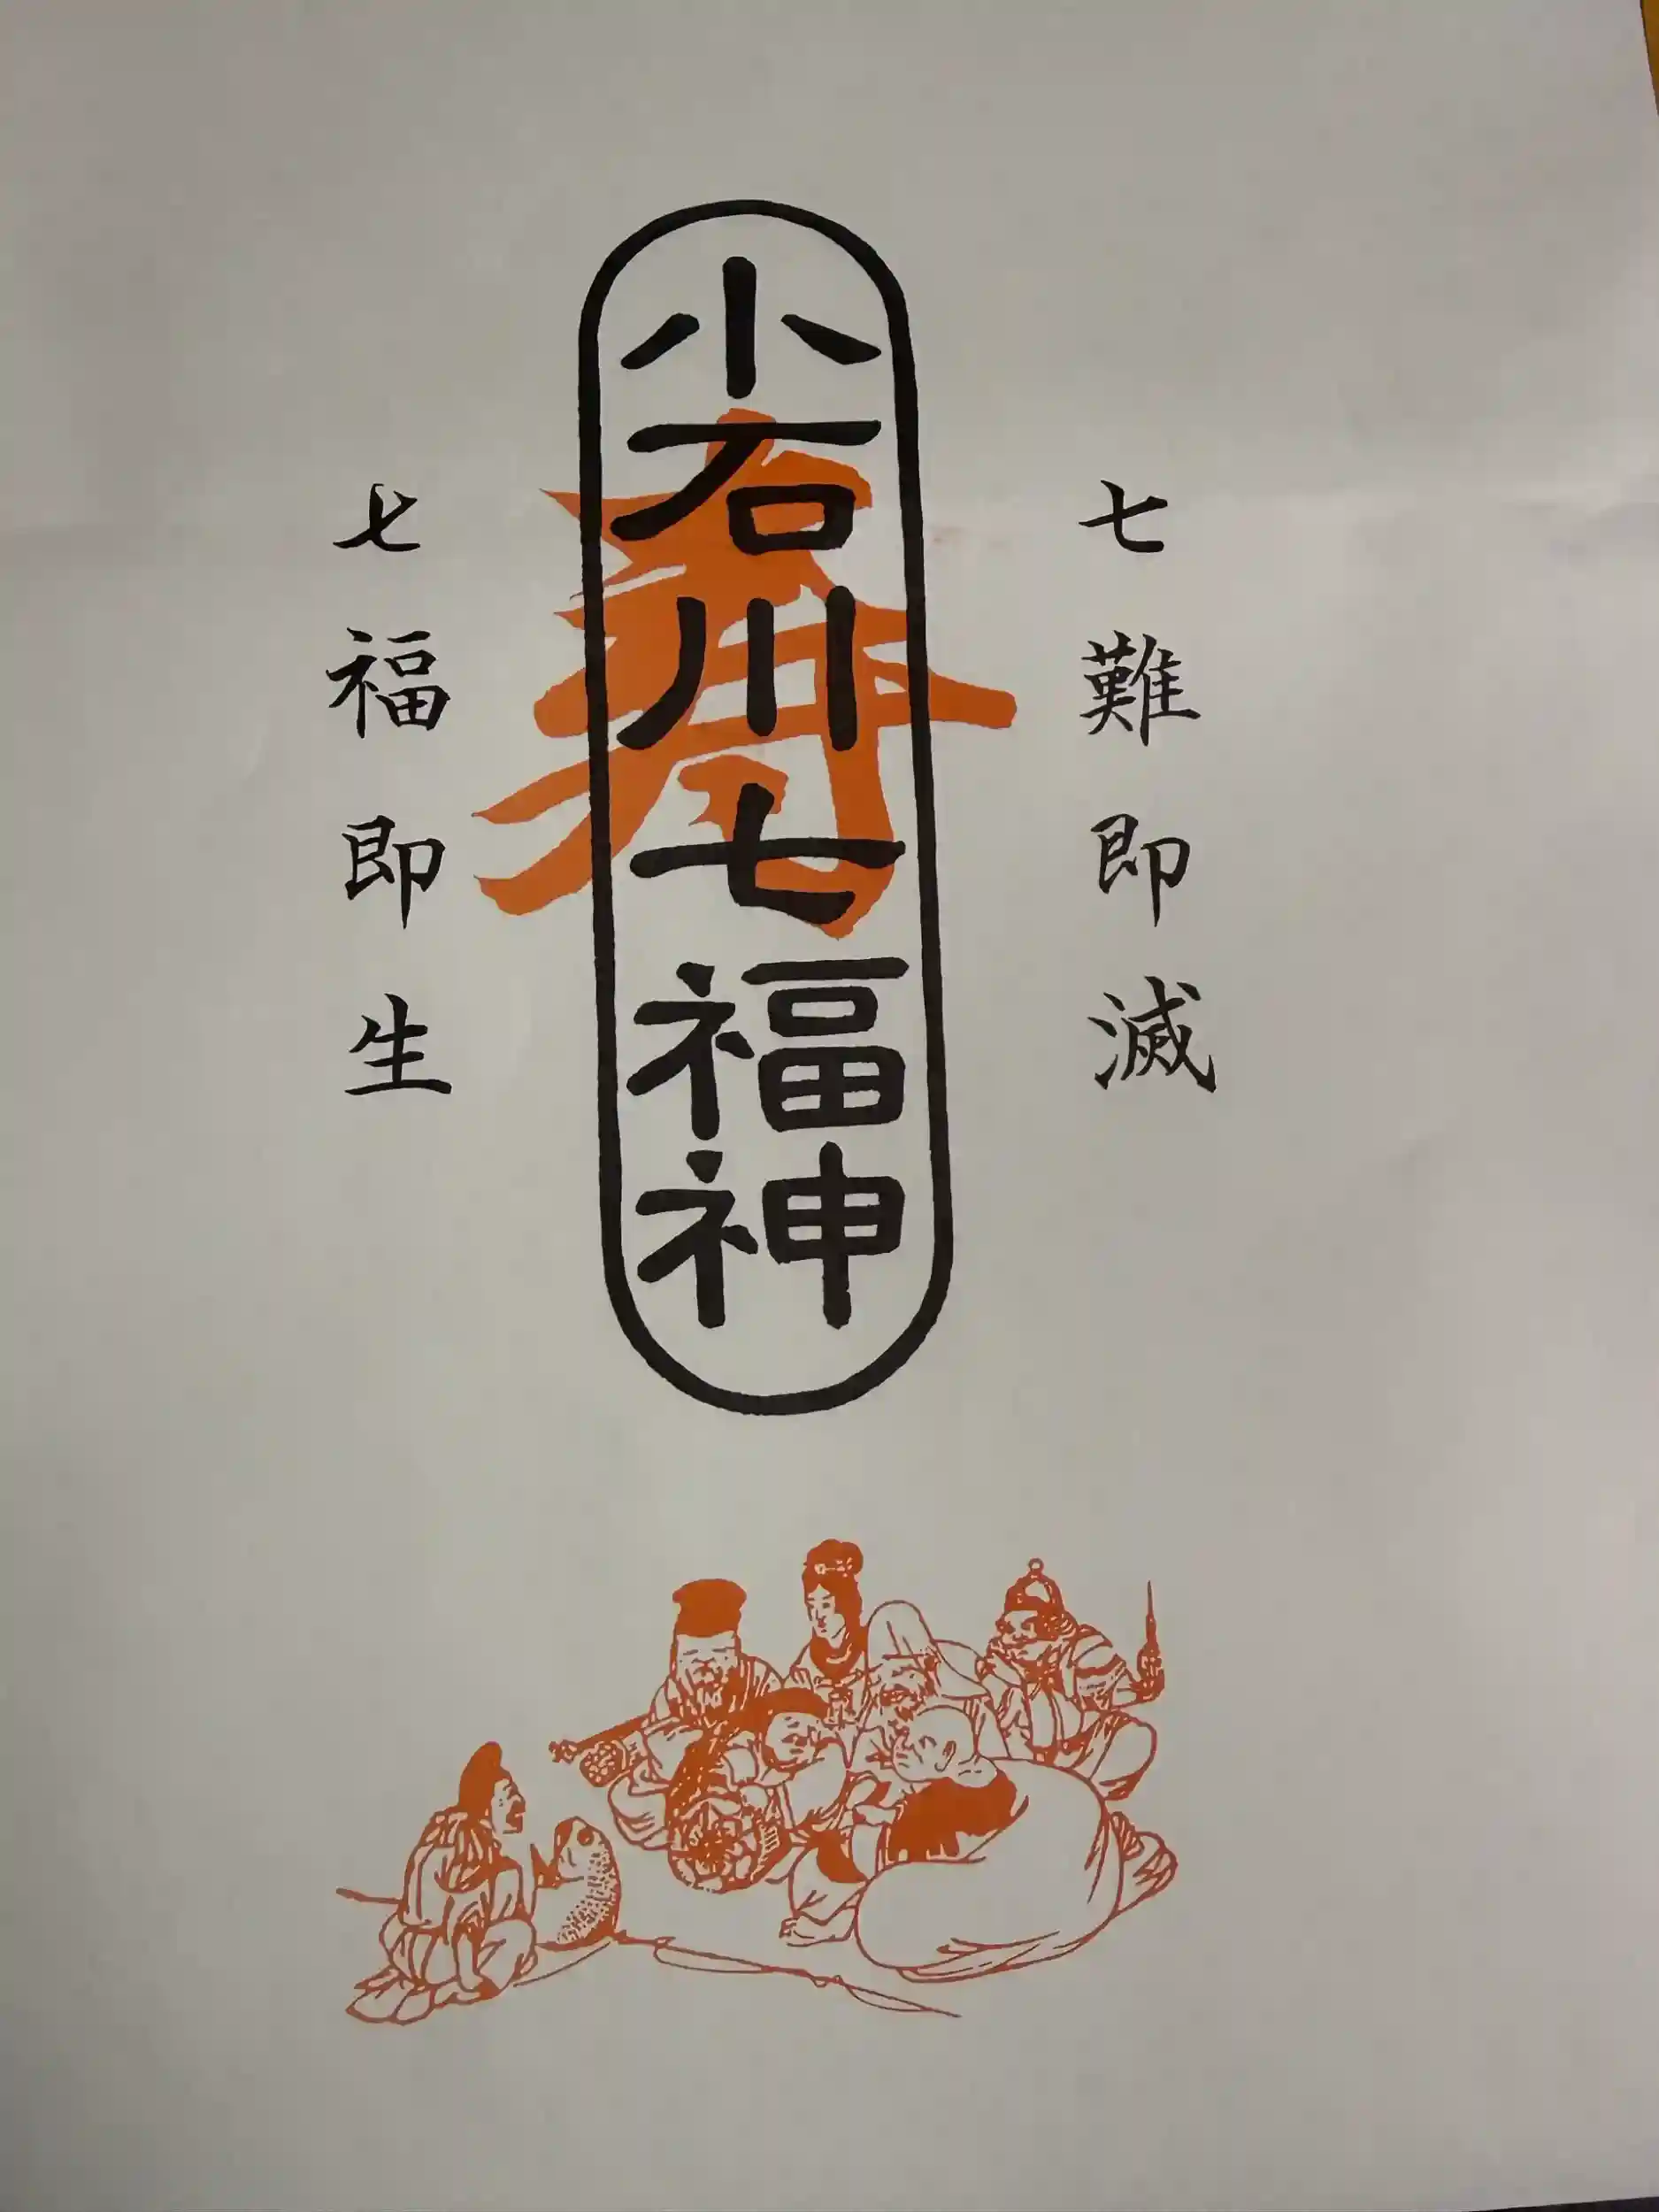 七難即滅
小石川七福神
寿
七福即生